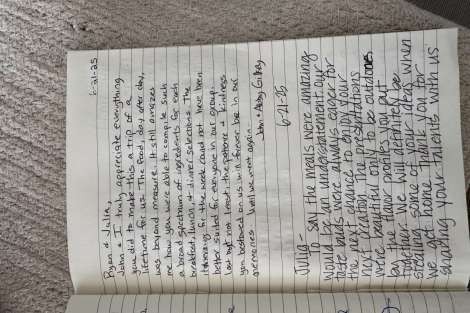 6-21-25
Ryan & Julia,
John & I truly appreciate everything
you did to make this a trip of a
lifetime for us. The food, day after day,
was beyond amazing. It still amazes
me how you were able to compile such
a broad spectrum of ingredients for each
breakfast, lunch, & dinner selections. The
itinerary for the week could not have been
better suited for everyone in our group.
Last but not least, the patience & kindness
you bestowed on us will forever be in our
memories. Until we meet again.
John & Abby
6-21-25
Julia-
To say the meals were amazing
would be an understatement. Our
taste buds were always eager for
the next chance to enjoy your
next creation. The presentations
were beautiful only to be outdone
by the flavor profiles you put
together. We will definitely be
stealing some of your ideas when
we get home. Thank you for
sharing your talents with us